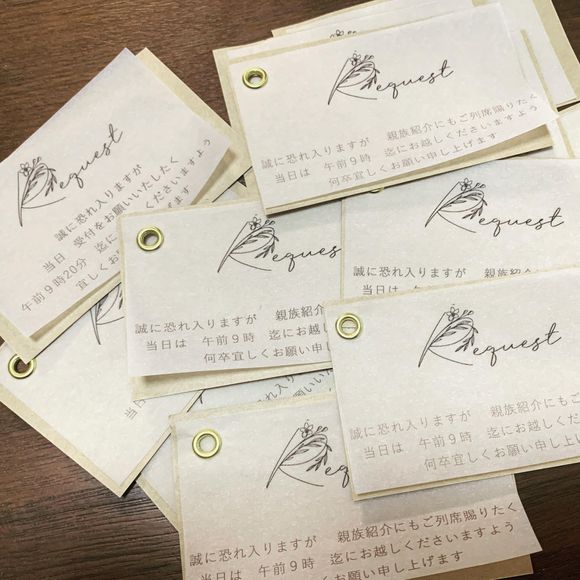 Request
誠に恐れ入りますが 親族紹介にもご列席賜りたく
当日は 午前９時 迄にお越しくださいますよう
何卒宜しくお願い申し上げます
Request
誠に恐れ入りますが
当日 受付をお願いいたしたく
午前９時20分 迄に
くださいますよう
宜しくお
ます
Reques
誠に恐れ入りますが 親族紹
当日は 午前９時 迄にお越し
何卒宜しくお願い申し
Request
誠に恐れ入りますが 親族紹介にも
当日は 午前９時
Request
誠に恐れ入りますが 親族紹介に
当日は 午前９時 迄にお越しくだ
何卒宜しくお願い申し上
equest
誠に恐れ入りますが 親族紹介にもご列席賜りたく
当日は 午前９時 迄にお越しくださいますよう
何卒宜しくお願い申し上げます
誠に恐れ入りますが